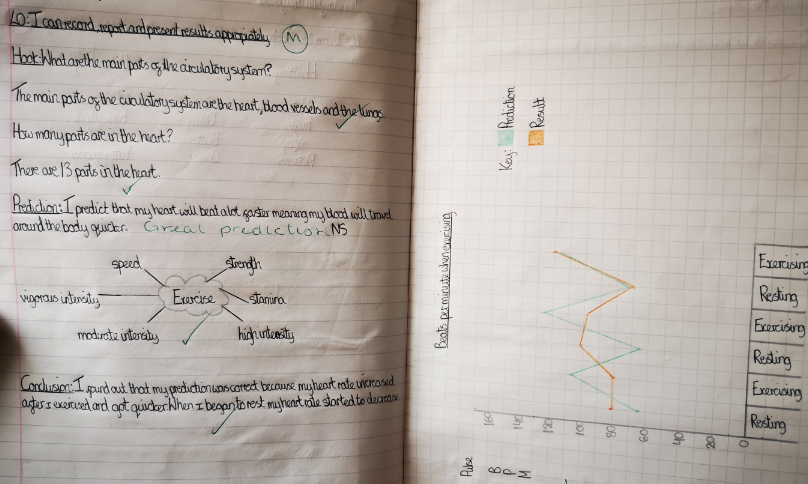 LO: I can record, report and present results appropiately. M
Hook: What are the main parts of the circulatory system?
The main parts of the circulatory system are the heart, blood vessels and the lungs.
How many parts are in the heart?
There are 13 parts in the heart.
Prediction: I predict that my heart will beat a lot faster meaning my blood will travel
around the body quicker. Great prediction NS
speed
strength
vigorous intensity
Exercise
stamina
moderate intensity
high intensity
Conclusion: I found out that my prediction was correct because my heart rate increased
after I exercised and got quicker. When I began to rest my heart rate started to decrease.
Key:
Prediction
Result
Beats per minute when exercising
Pulse
B
P
M
160
140
120
100
80
60
40
20
0
Resting
Exercising
Resting
Exercising
Resting
Exercising